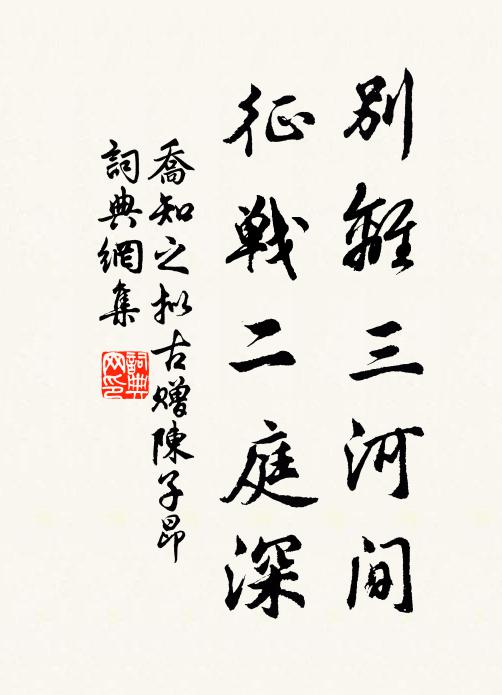 别離三河间
征戦二庭深
喬知之拟古赠陳子昂
詞典網集
詞典网印